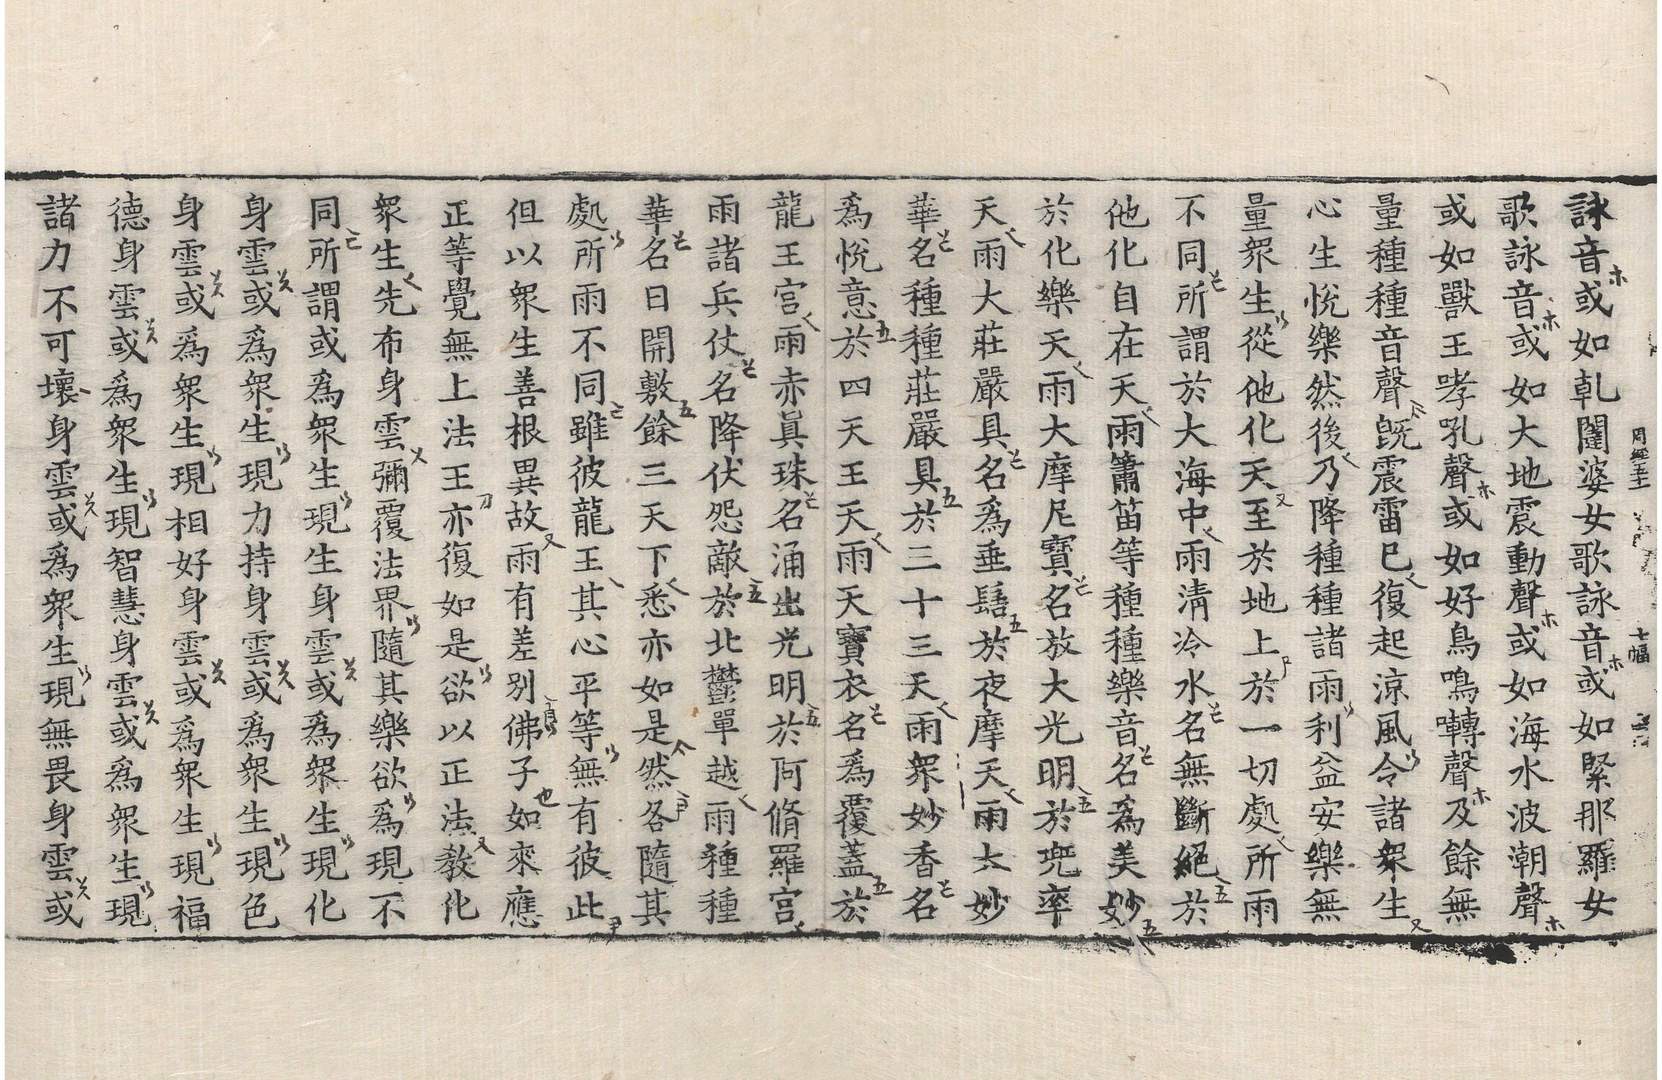 周經 七幅
詠音或如乹闥婆女歌詠音或如緊那羅女
歌詠音或如大地震動聲或如海水波潮聲
或如獸王哮吼聲或如好鳥鳴囀聲及餘無
量種種音聲旣震雷已復起涼風令諸衆生
心生悅樂然後乃降種種諸雨利益安樂無
量衆生從他化天至於地上於一切處所雨
不同所謂於大海中雨清冷水名無斷絕於
他化自在天雨簫笛等種種樂音名爲美妙
於化樂天雨大摩尼寶名放大光明於兜率
天雨大莊嚴具名爲垂髻於夜摩天雨大妙
華名種種莊嚴具於三十三天雨衆妙香名
爲悅意於四天王天雨天寶衣名爲覆蓋於
龍王宮雨赤眞珠名涌出光明於阿脩羅宮
雨諸兵仗名降伏怨敵於北鬱單越雨種種
華名曰開敷餘三天下悉亦如是然各隨其
處所雨不同雖彼龍王其心平等無有彼此
但以衆生善根異故雨有差別佛子如來應
正等覺無上法王亦復如是欲以正法教化
衆生先布身雲彌覆法界隨其樂欲爲現不
同所謂或爲衆生現生身雲或爲衆生現化
身雲或爲衆生現力持身雲或爲衆生現色
身雲或爲衆生現相好身雲或爲衆生現福
德身雲或爲衆生現智慧身雲或爲衆生現
諸力不可壞身雲或爲衆生現無畏身雲或